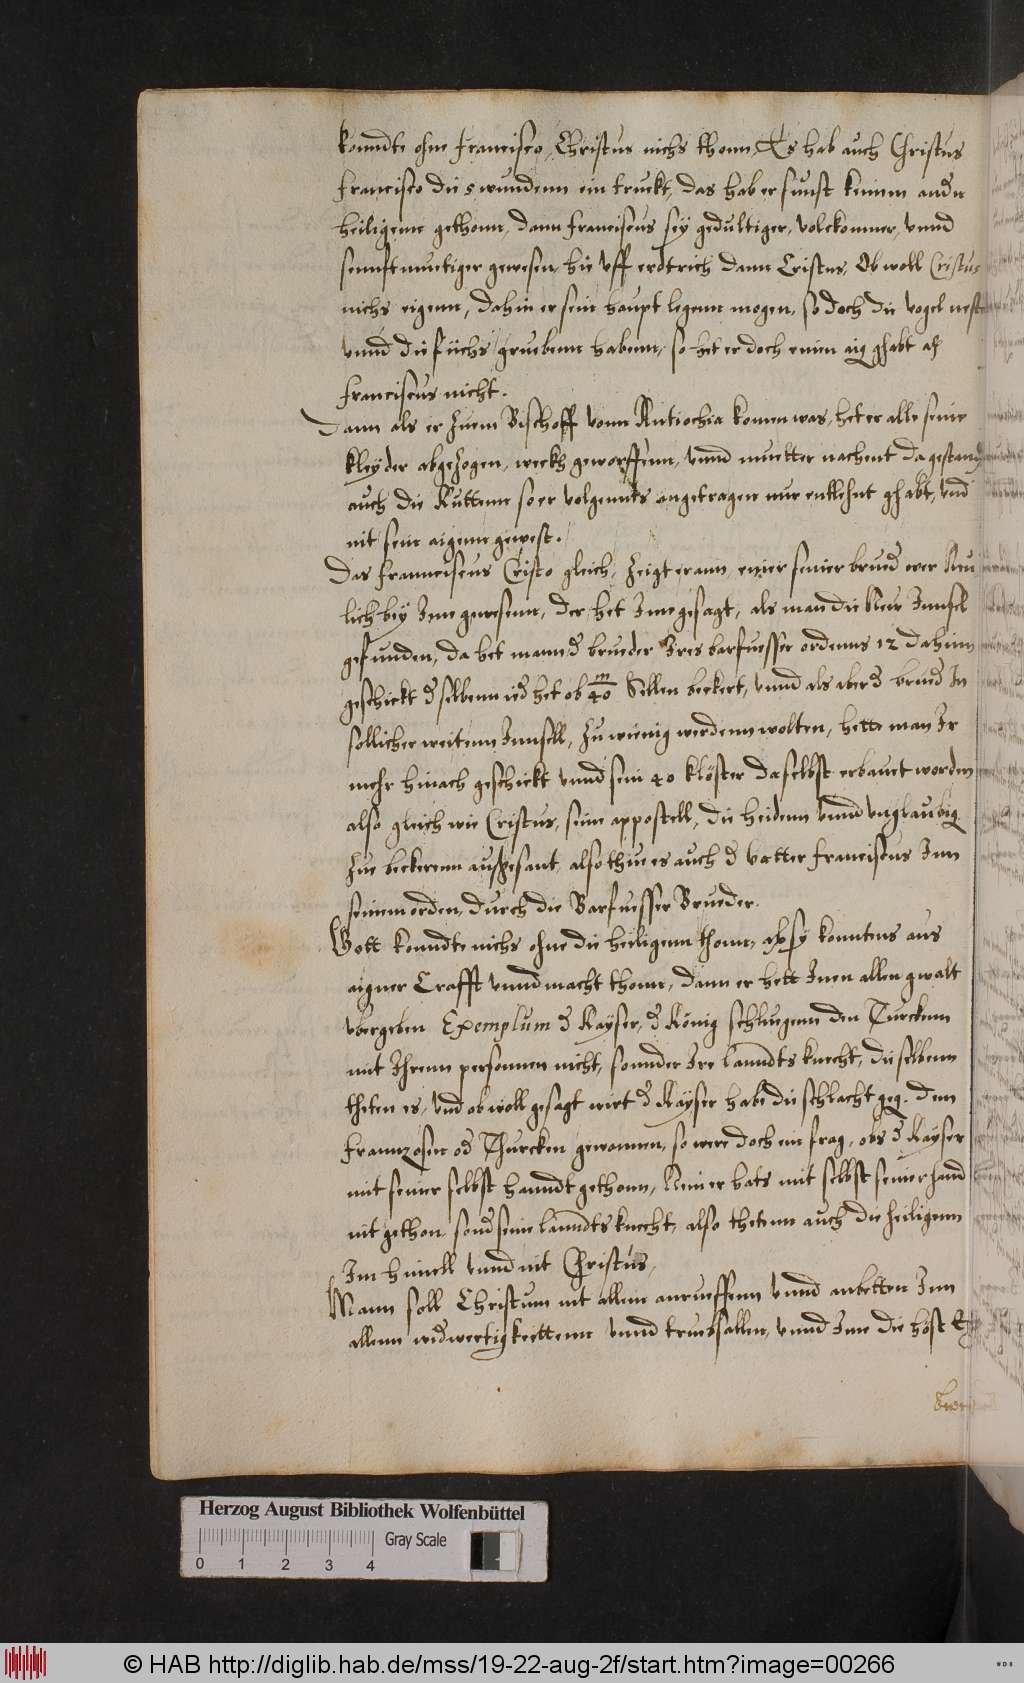 konndte ohne Francisco, Christus nichs thonn, Es hab auch Christus
Francisco die 5 wundenn ein truckt, das hab er sunst keinem andn
heiligenn gethonn, dann Franciscus sey gedultiger, volckomner, vnnd
sennfftmuetiger gewesen, hie vff erdtrich dann Cristus, Ob woll Cristus
nichs eigenn, dahin er sein haupt legenn mogen, so doch die vogel nest
vnnd die füchs gruebenn habenn, so het er doch ennen aig ghabt
Franciscus nicht.
Dann als er zuem Bischoff vonn Antiochia komen was, het er alle seine
kleyder abgezogen, weckh geworffenn, vnnd muetter nachent da gestand
auch die Kuttenn so er volgennts angetragen nur entlehnt ghabt, vnd
nit sein aigenn gewest.
Das Franneiscus Cristo gleich, zeigt er ann, einer seiner brued wer Neu
lich bey Ime gewesenn, der het Ime gesagt, als man die New Innsel
gefunden, da het mann d brueder Ires barfuesser ordenns 12 dahinn
geschickt dselbenn ied het ob m/40 Sellen bekert, vnnd als aber d brued In
sollicher weitenn Innsell, zu wienig werdenn wolten, hette man Ir
mehr hinach geschickt vnnd sein 40 klöster daselbst erbauet worden
also gleich wie Cristus, seine appostell, die heidenn vnnd vnglaubig
zue bekerenn außgesant, also thue es auch d vatter Franciscus Inn
seinem orden, durch die Barfuesser Brueder.
Gott konndte nichs ohne die heiligenn thonn, aber sy konntens aus
aigner Crafft vnnd macht thonn, dann er hett Inen allen gwalt
vbergeben Exemplum d Kayser, d König schlugenn den Turckenn
mit Ihrenn personnen nicht, sonnder Ire lanndts knecht, die selbenn
theten es, vnd ob woll gesagt wirt d Kayser habe die schlacht geg. dem
Frannzosen od Thurcken gewonnen, so were doch ein frag, obs d Kayser
mit seiner selbst hanndt gethonn, Keiner hats mit selbst seiner hand
nit gethon, sond seine lanndts knecht, also thetenn auch die heiligenn
Im himell vnnd nit Christus,
Mann soll Christum nit allein anrueffenn vnnd anbetten Inn
allenn widwertigkeittenn vnnd truebsallen, vnnd Ime die höst
Herzog August Bibliothek Wolfenbüttel
Gray Scale
0 1 2 3 4
© HAB http://diglib.hab.de/mss/19-22-aug-2f/start.htm?image=00266